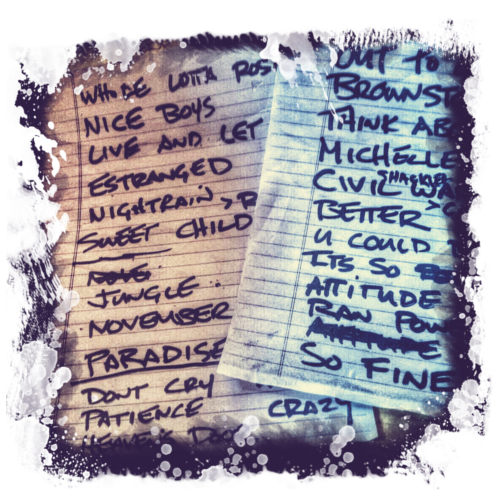 WHOLE LOTTA ROS
NICE BOYS
LIVE AND LET
ESTRANGED
NIGHTRAIN >
SWEET CHILD
JUNGLE
NOVEMBER
PARADISE
DONT CRY
PATIENCE
CRAZY
OUT TO
BROWNST
THINK AB
MICHELLE
SHACKLER
CIVIL WA
BETTER >
U COULD
ITS SO
ATTITUDE
RAN POW
ATTITUDE
SO FINE